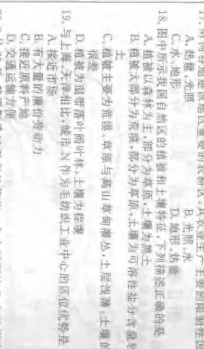 17. 河谷地是该地区重要的农耕区，其农业生产主要的限制性因
A. 热量、光照 B. 光照、水
C. 水、地形 D. 地形、热量
18. 图中所示我国自然区的植被和土壤特征，下列描述正确的是
A. 植被以森林为主，部分为草原，土壤为黑土
B. 植被大部分为荒漠，部分为草原，土壤为可溶性盐分含量
土
C. 植被主要为荒漠、草原与高山草甸灌丛，土层浅薄，土壤的
很差
D. 植被为温带落叶阔叶林，土壤为棕壤
19. 与上海、天津相比，城市 N 作为毛纺织工业中心的区位优势是
A. 接近市场
B. 有大量的廉价劳动力
C. 接近原料产地
D. 交通运输方便